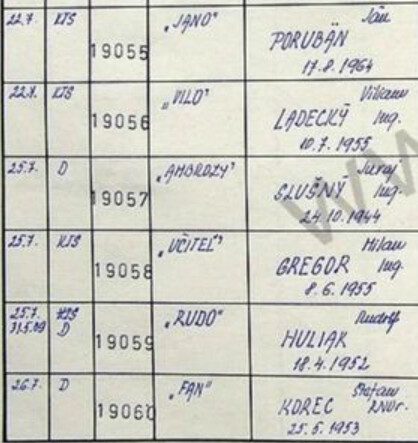 22.7. KTS 19055 „JANO" Ján
PORUBÄN
17.8.1964
22.7. KTS 19056 „VILO" Viliam
LADECKÝ Ing.
10.7.1955
25.7. D 19057 „AMBROZY" Juraj
SLUŠNÝ Ing.
24.10.1944
25.7. KTS 19058 „UČITEĽ" Milan
GREGOR Ing.
8.6.1955
25.7. KTS 19059 „RUDO" Rudolf
31.5.89 D HULIAK
18.4.1952
26.7. D 19060 „FAN" Štefan
KOREC
25.5.1953
WW